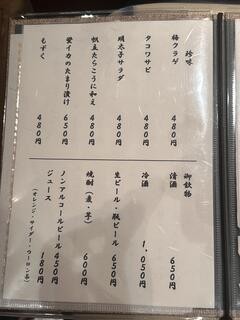 珍味
梅クラゲ 480円
タコワサビ 480円
明太子サラダ 480円
帆立たらこうに和え 480円
蛍イカのたまり漬け 650円
もずく 480円
御飲物
清酒 650円
冷酒 1,050円
生ビール・瓶ビール 650円
焼酎(麦・芋) 600円
ノンアルコールビール 450円
ジュース 180円
(オレンジ・サイダー・ウーロン茶)